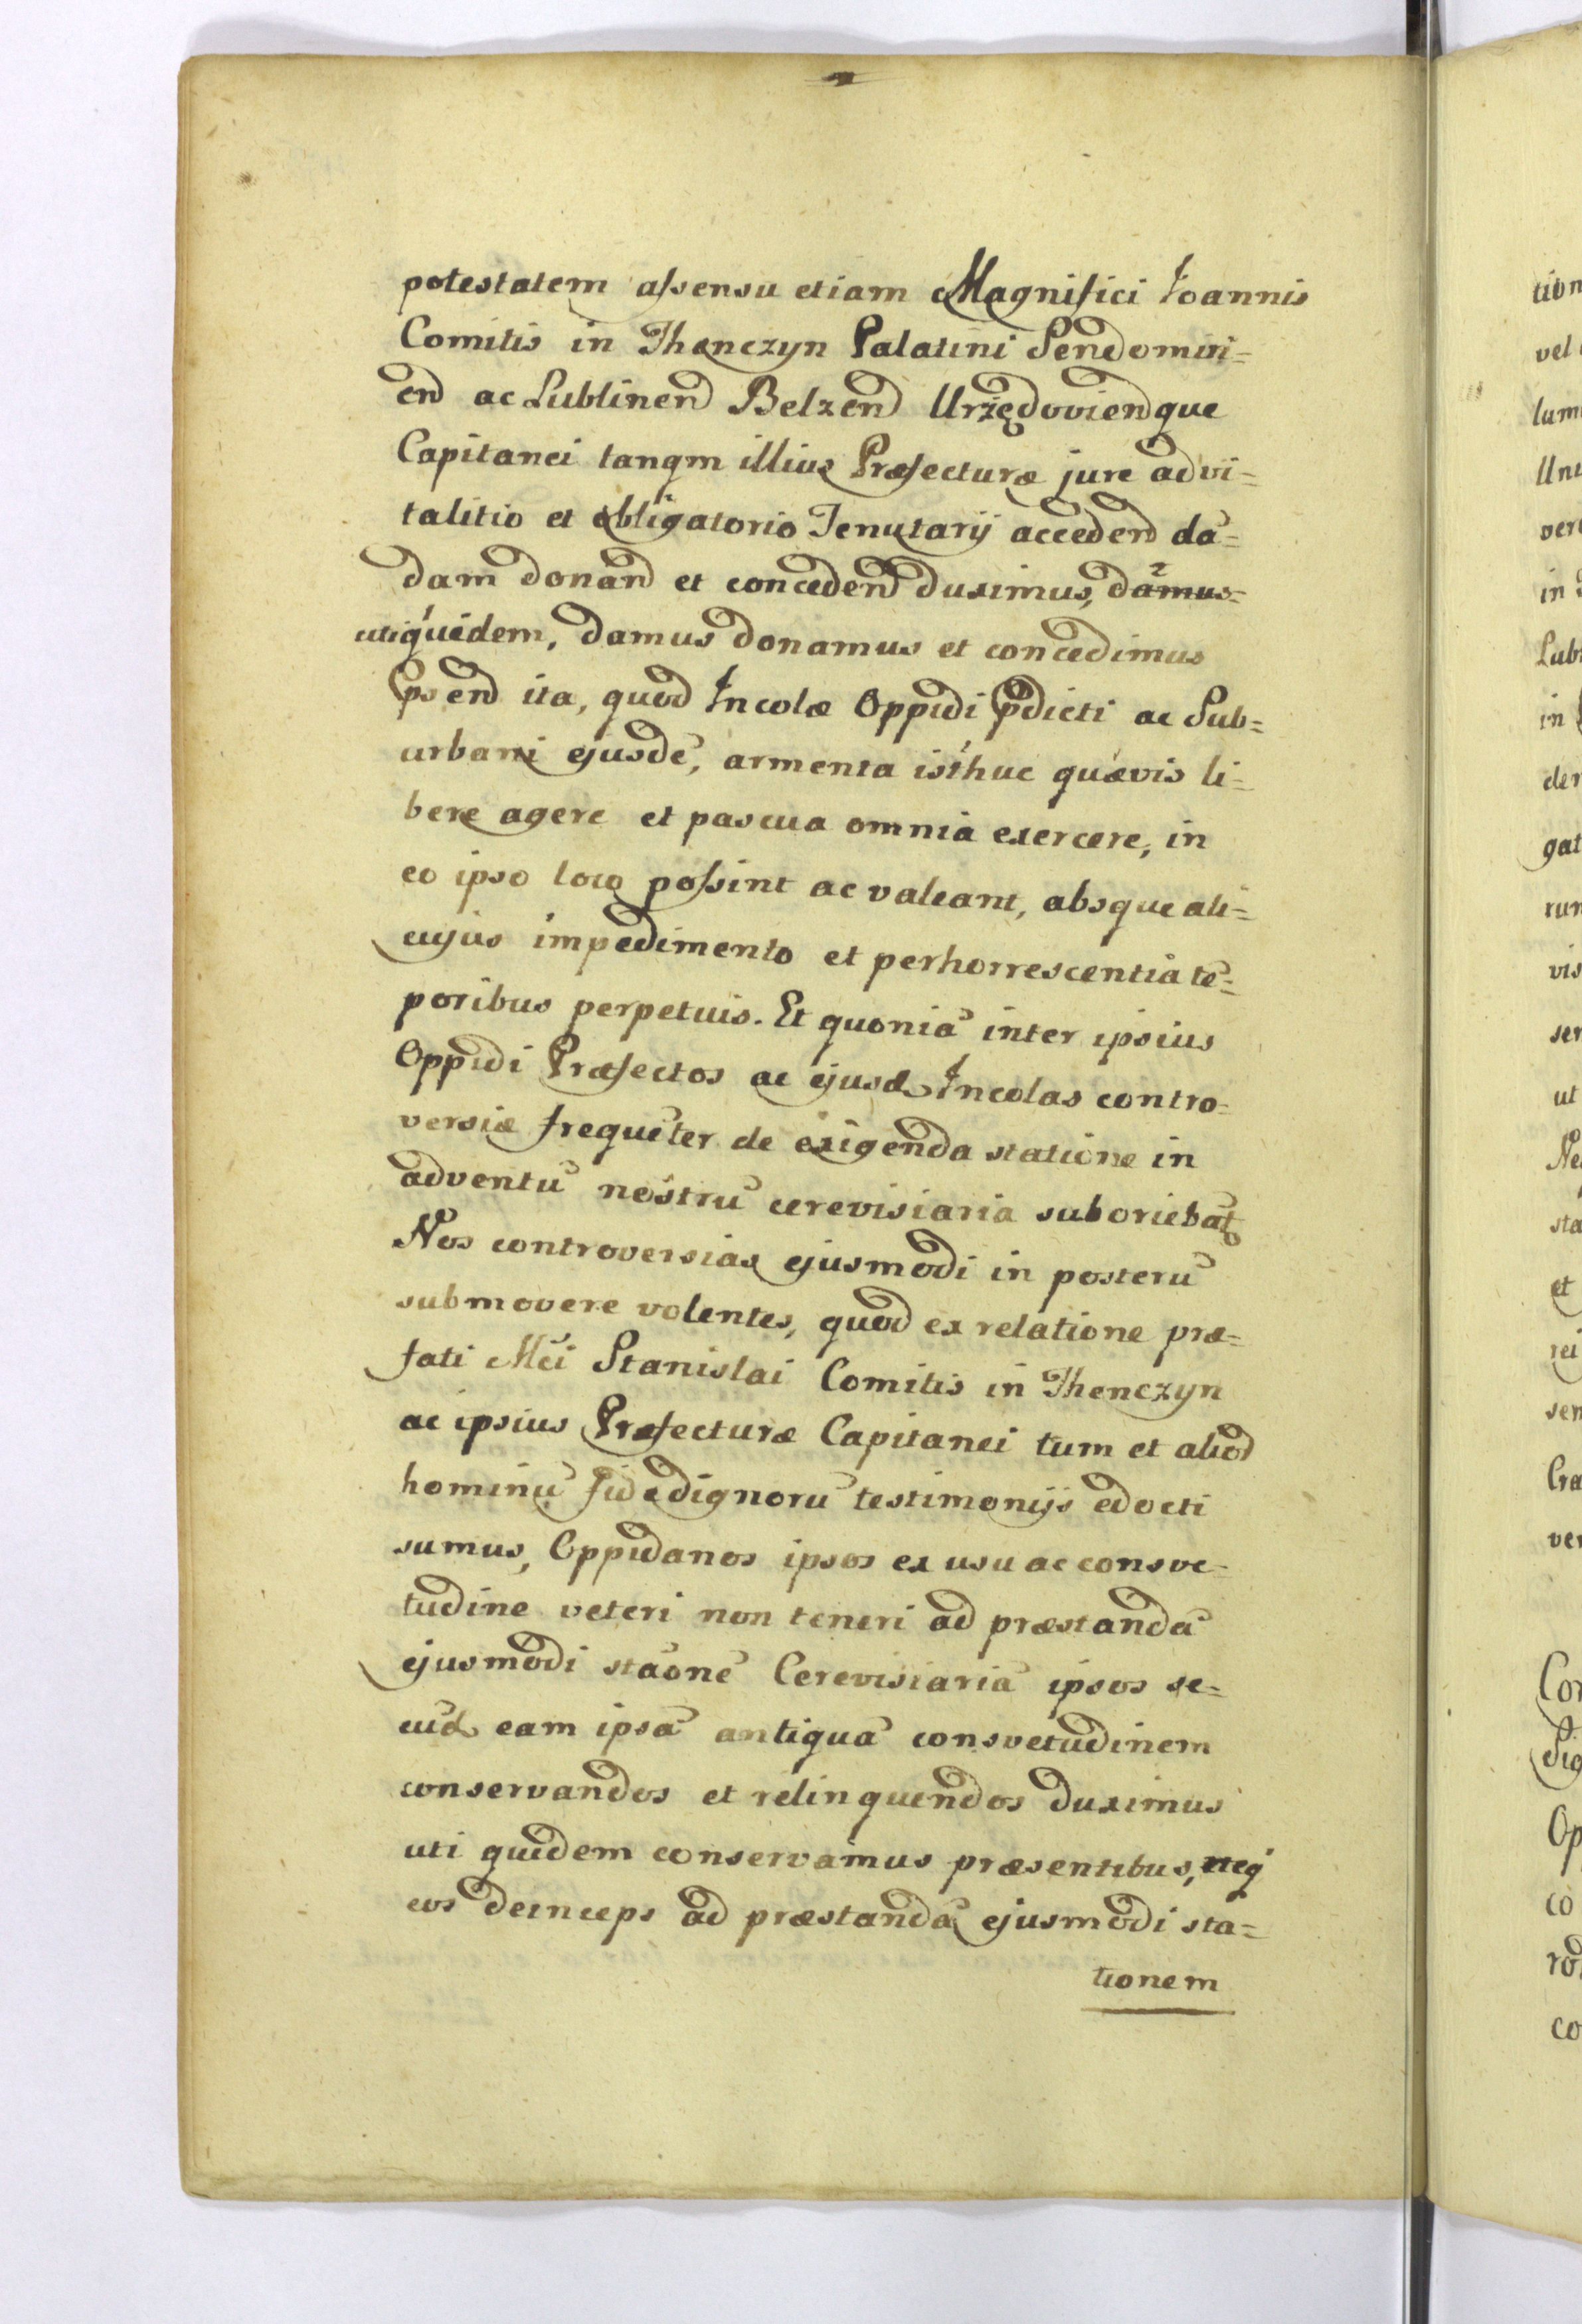 potestatem assensu etiam Magnifici Joannis
Comitis in Thenczyn Palatini Sendomiri=
en͠ ac Lublinen͠ Belzen͠ Urzędovien͠que
Capitanei tanqm illius Præfecturæ jure advi=
talitio et obligatorio Tenutarij acceden͠ da͠=
dam donan͠ et conceden͠ duximus,
uti quidem, damus donamus et concedimus
p͠sen͠ ita, quod Incolæ Oppidi p͠dicti ac Sub=
urbani ejusde͠, armenta isthuc quævis li=
bere agere et pascua omnia exercere, in
eo ipso loco possint ac valeant, absque ali=
cujus impedimento et perhorrescentia te͠=
poribus perpetuis. Et quonia͠ inter ipsius
Oppidi Præfectos ac ejusd Incolas contro=
versiæ freque͠ter de exigenda statione in
adventu͠ nostru͠ cerevisiaria suborieba͠t
Nos controversias ejusmodi in posteru͠
submovere volentes, quod ex relatione præ=
fati Mci Stanislai Comitis in Thenczyn
ac ipsius Præfecturæ Capitanei tum et aliod
hominu͠ fidedignoru͠ testimonijs edocti
sumus, Oppidanos ipsos ex usu ac consve=
tudine veteri non teneri ad præstanda͠
ejusmodi sta͠one͠ Cerevisiaria͠ ipsos se=
cu͠d eam ipsa͠ antiqua͠ consvetudinem
conservandos et relinquendos duximus
uti quidem conservamus præsentibus, neq'
eos deinceps ad præstanda͠ ejusmodi sta=
tionem